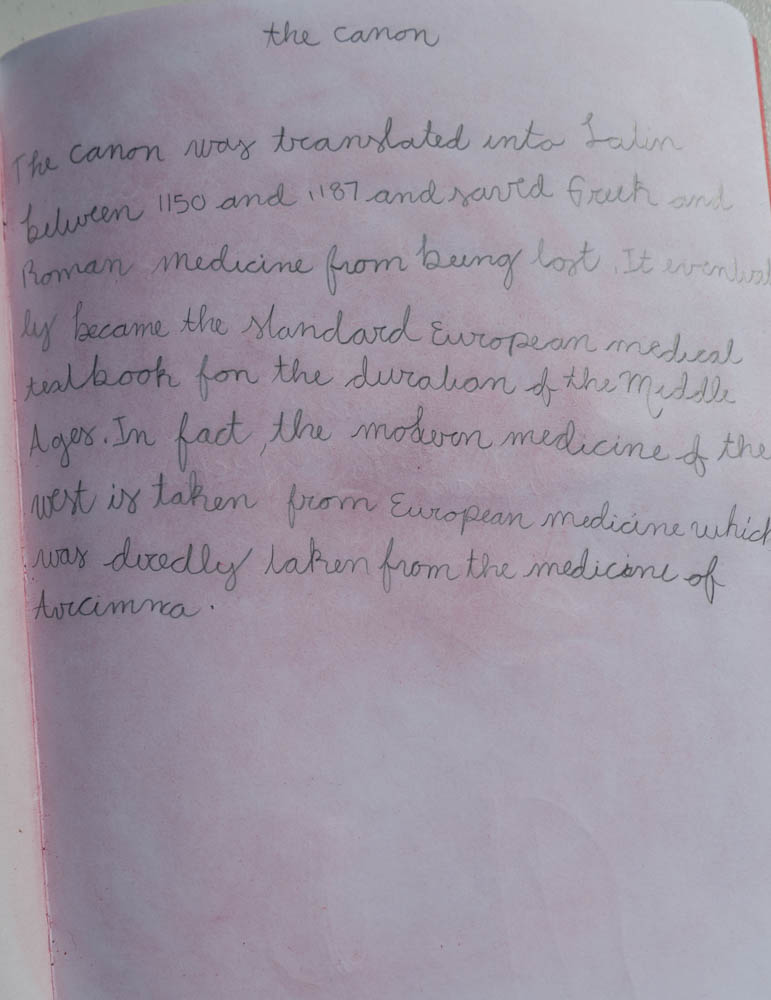 the canon
The canon was translated into Latin
between 1150 and 1187 and saved Greek and
Roman medicine from being lost. It eventual
ly became the standard European medical
textbook for the duration of the Middle
Ages. In fact, the modern medicine of the
west is taken from European medicine which
was directly taken from the medicine of
Avicinna.